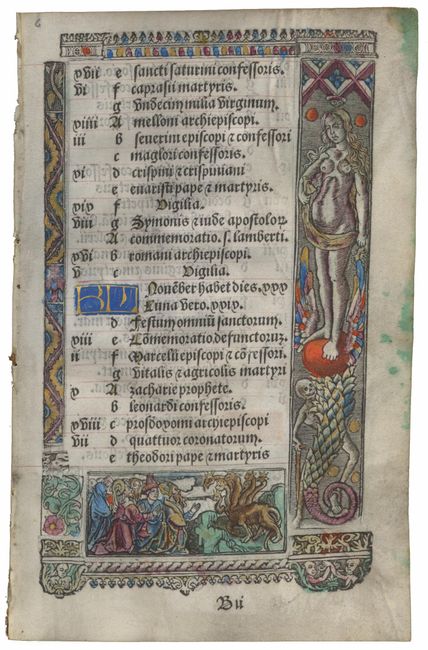 6
xvii e sancti saturini confessoris.
vi f caprasii martyris.
g vndecim milia virginum.
xiiii A melloni archiepiscopi.
iii b seuerini episcopi ⁊ confessori
c maglori confessoris.
xi d crispini ⁊ crispiniani
e euaristi pape ⁊ martyris.
xix f Vigilia.
viii g Symonis ⁊ iude apostolorꝝ
A commemoratio. s. lamberti.
xvi b romani archiepiscopi.
v c Vigilia.
KL Nouēber habet dies. xxx
Luna vero. xxix.
d Festum omniū sanctorum.
xiii e Cōmemoratio defunctorum.
ii f Marcelli episcopi ⁊ cōfessori.
g vitalis ⁊ agricolis martyri
x A zacharie prophete.
b leonardi confessoris.
xviii c prosdoyomi archiepiscopi
vii d quattuor coronatorum.
e theodori pape ⁊ martyris
Bii